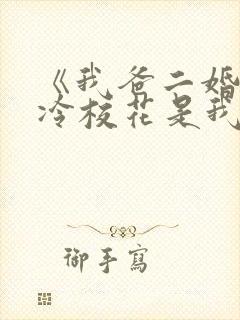 《我爸二婚
冷校花是我
御手寫